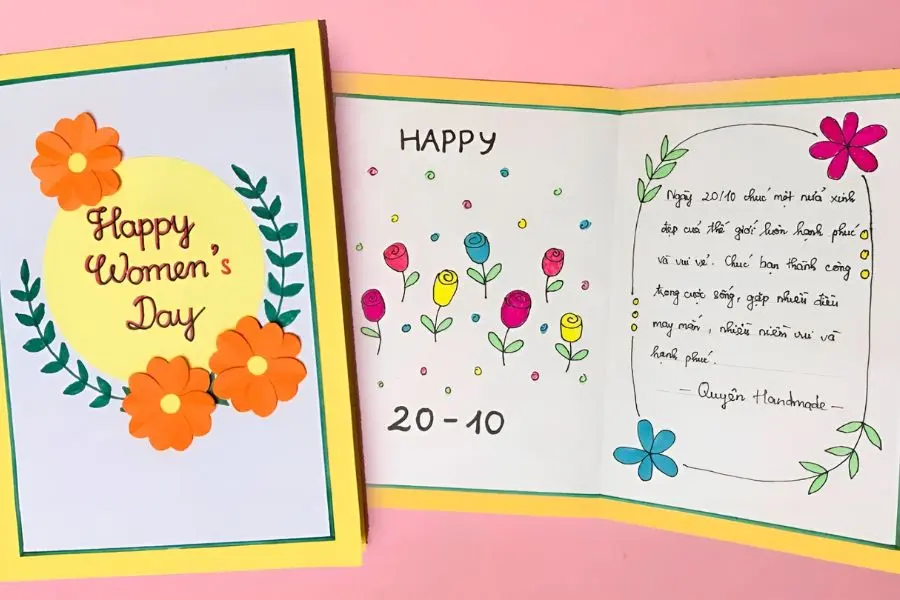 Happy
Women's
Day
HAPPY
20-10
Ngày 20/10 chúc một nửa xinh
đẹp của thế giới luôn hạnh phúc
và vui vẻ. Chúc bạn thành công
trong cuộc sống, gặp nhiều điều
may mắn, nhiều niềm vui và
hạnh phúc.
- Quyên Handmade -